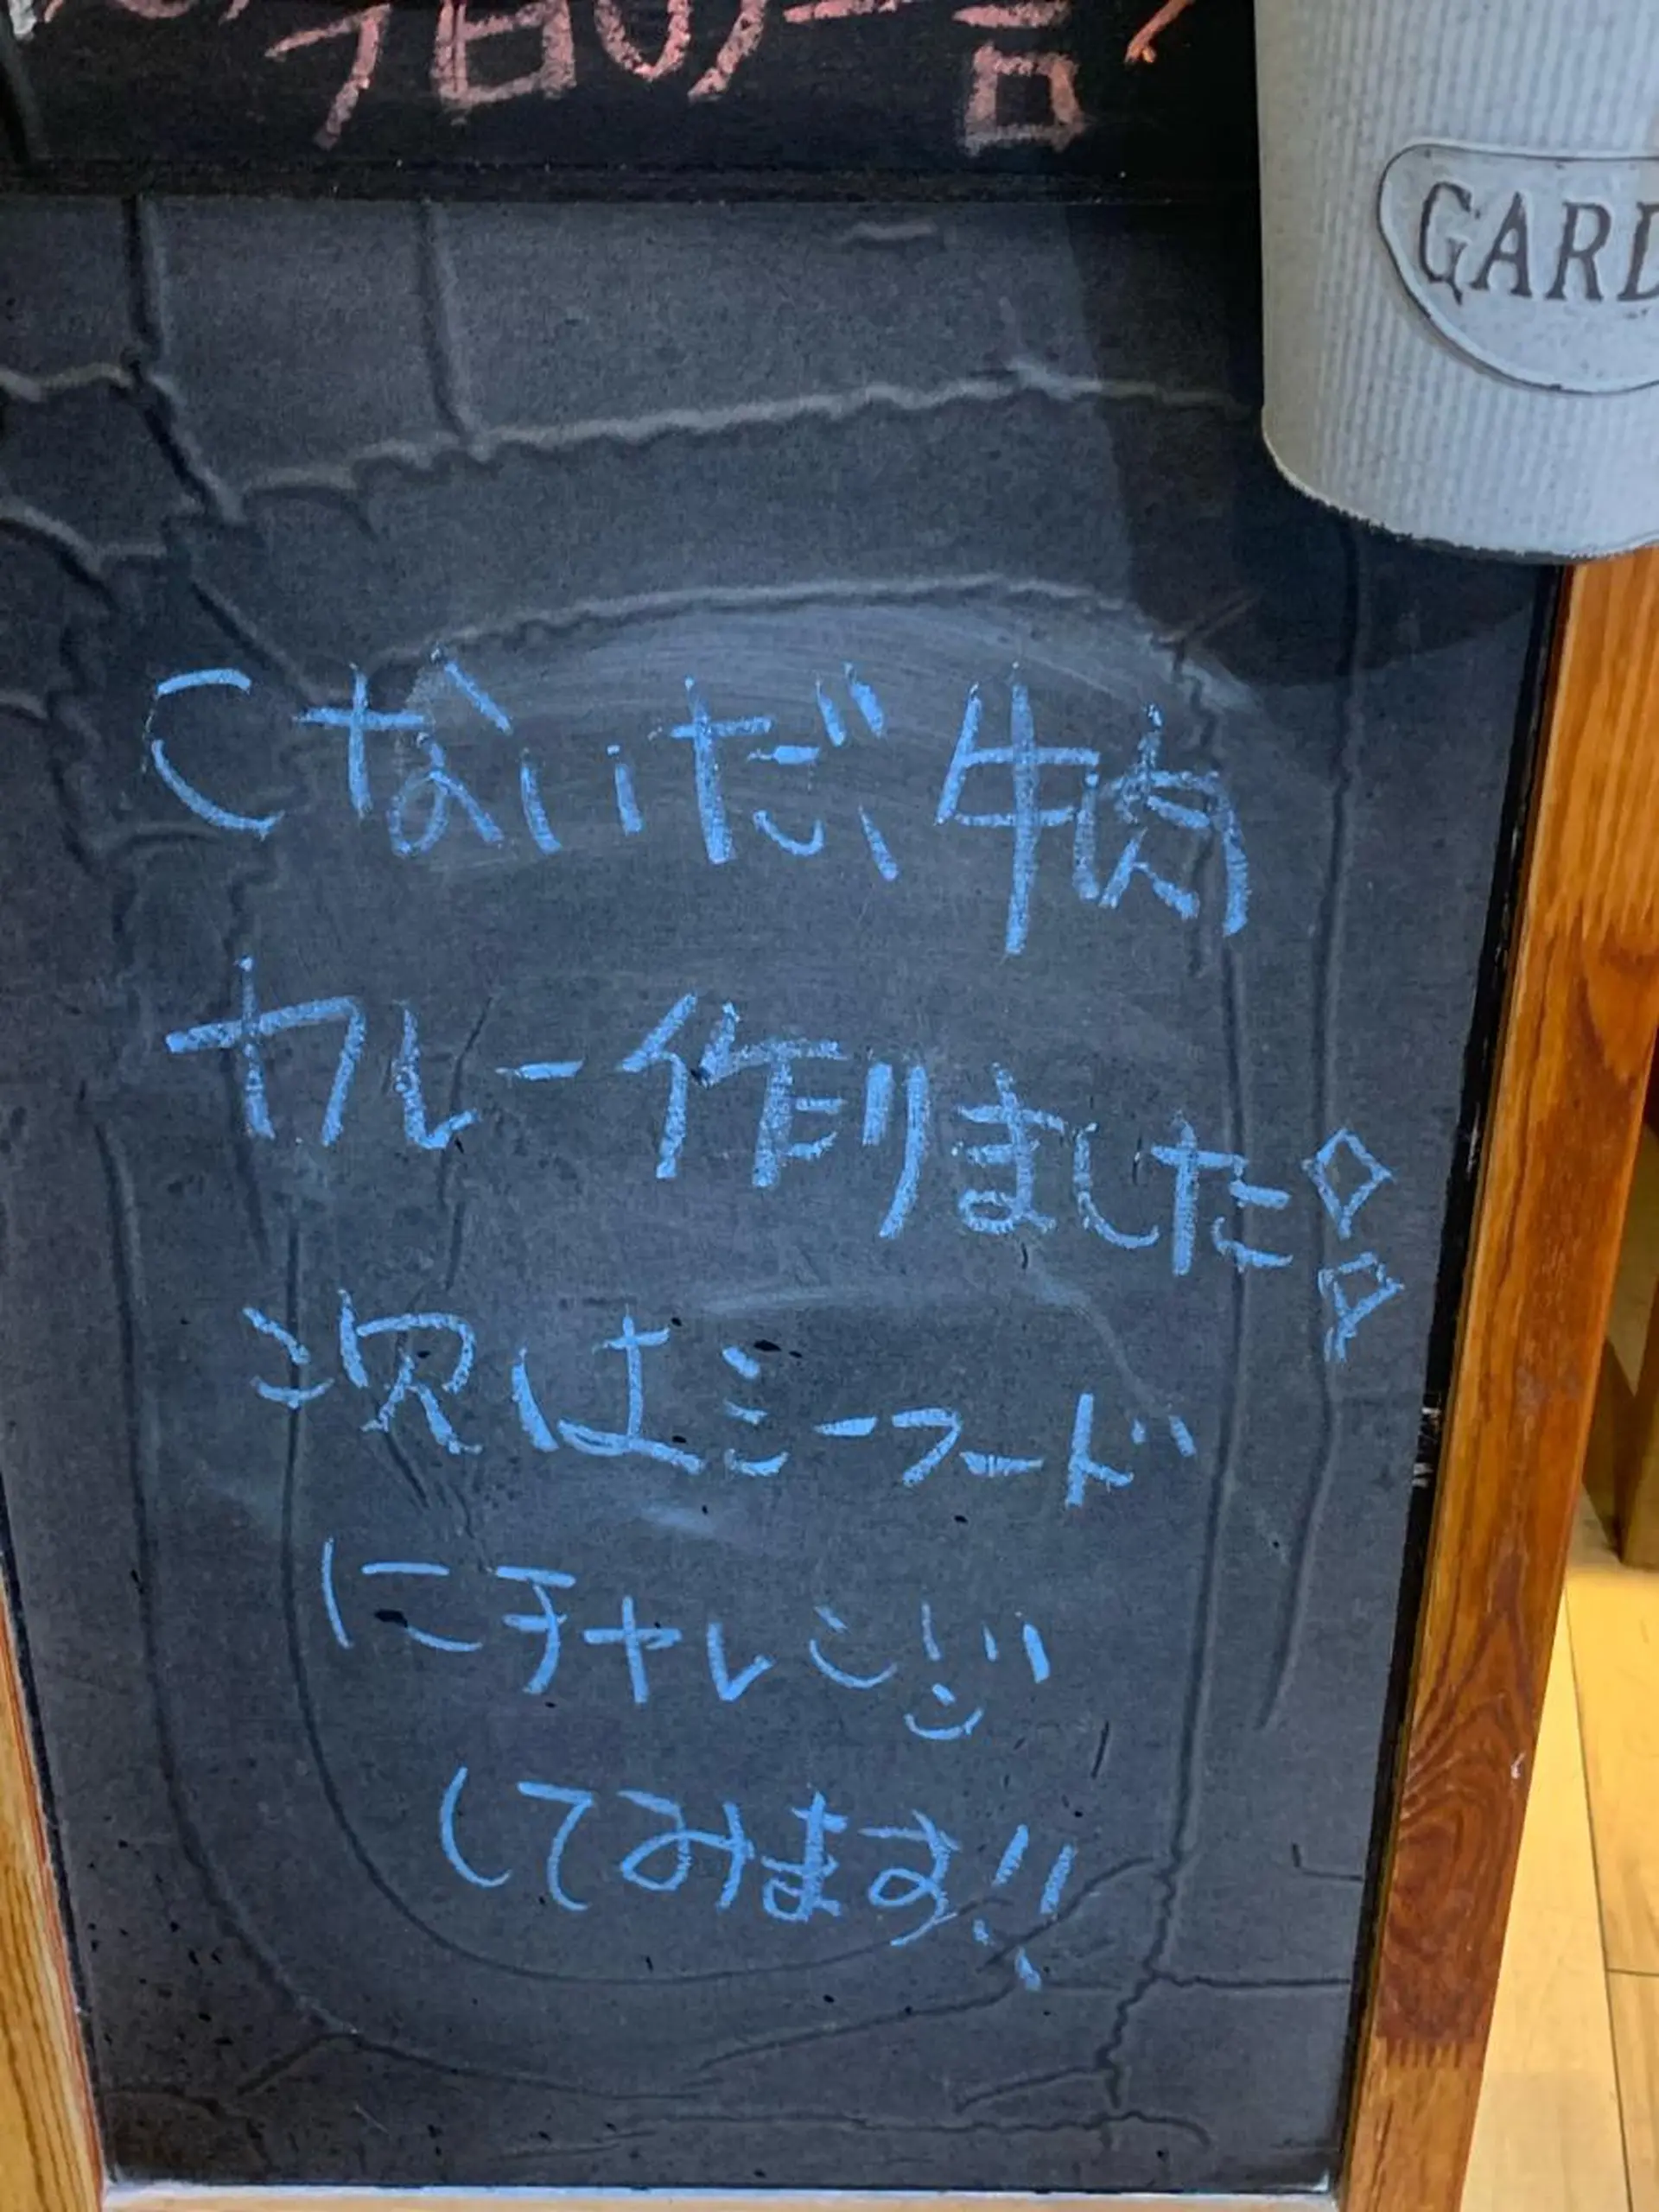 今日の一言
GARD
こないだ、牛肉
カレー作りました!!
次はシーフード
にチャレンジ
してみます!!